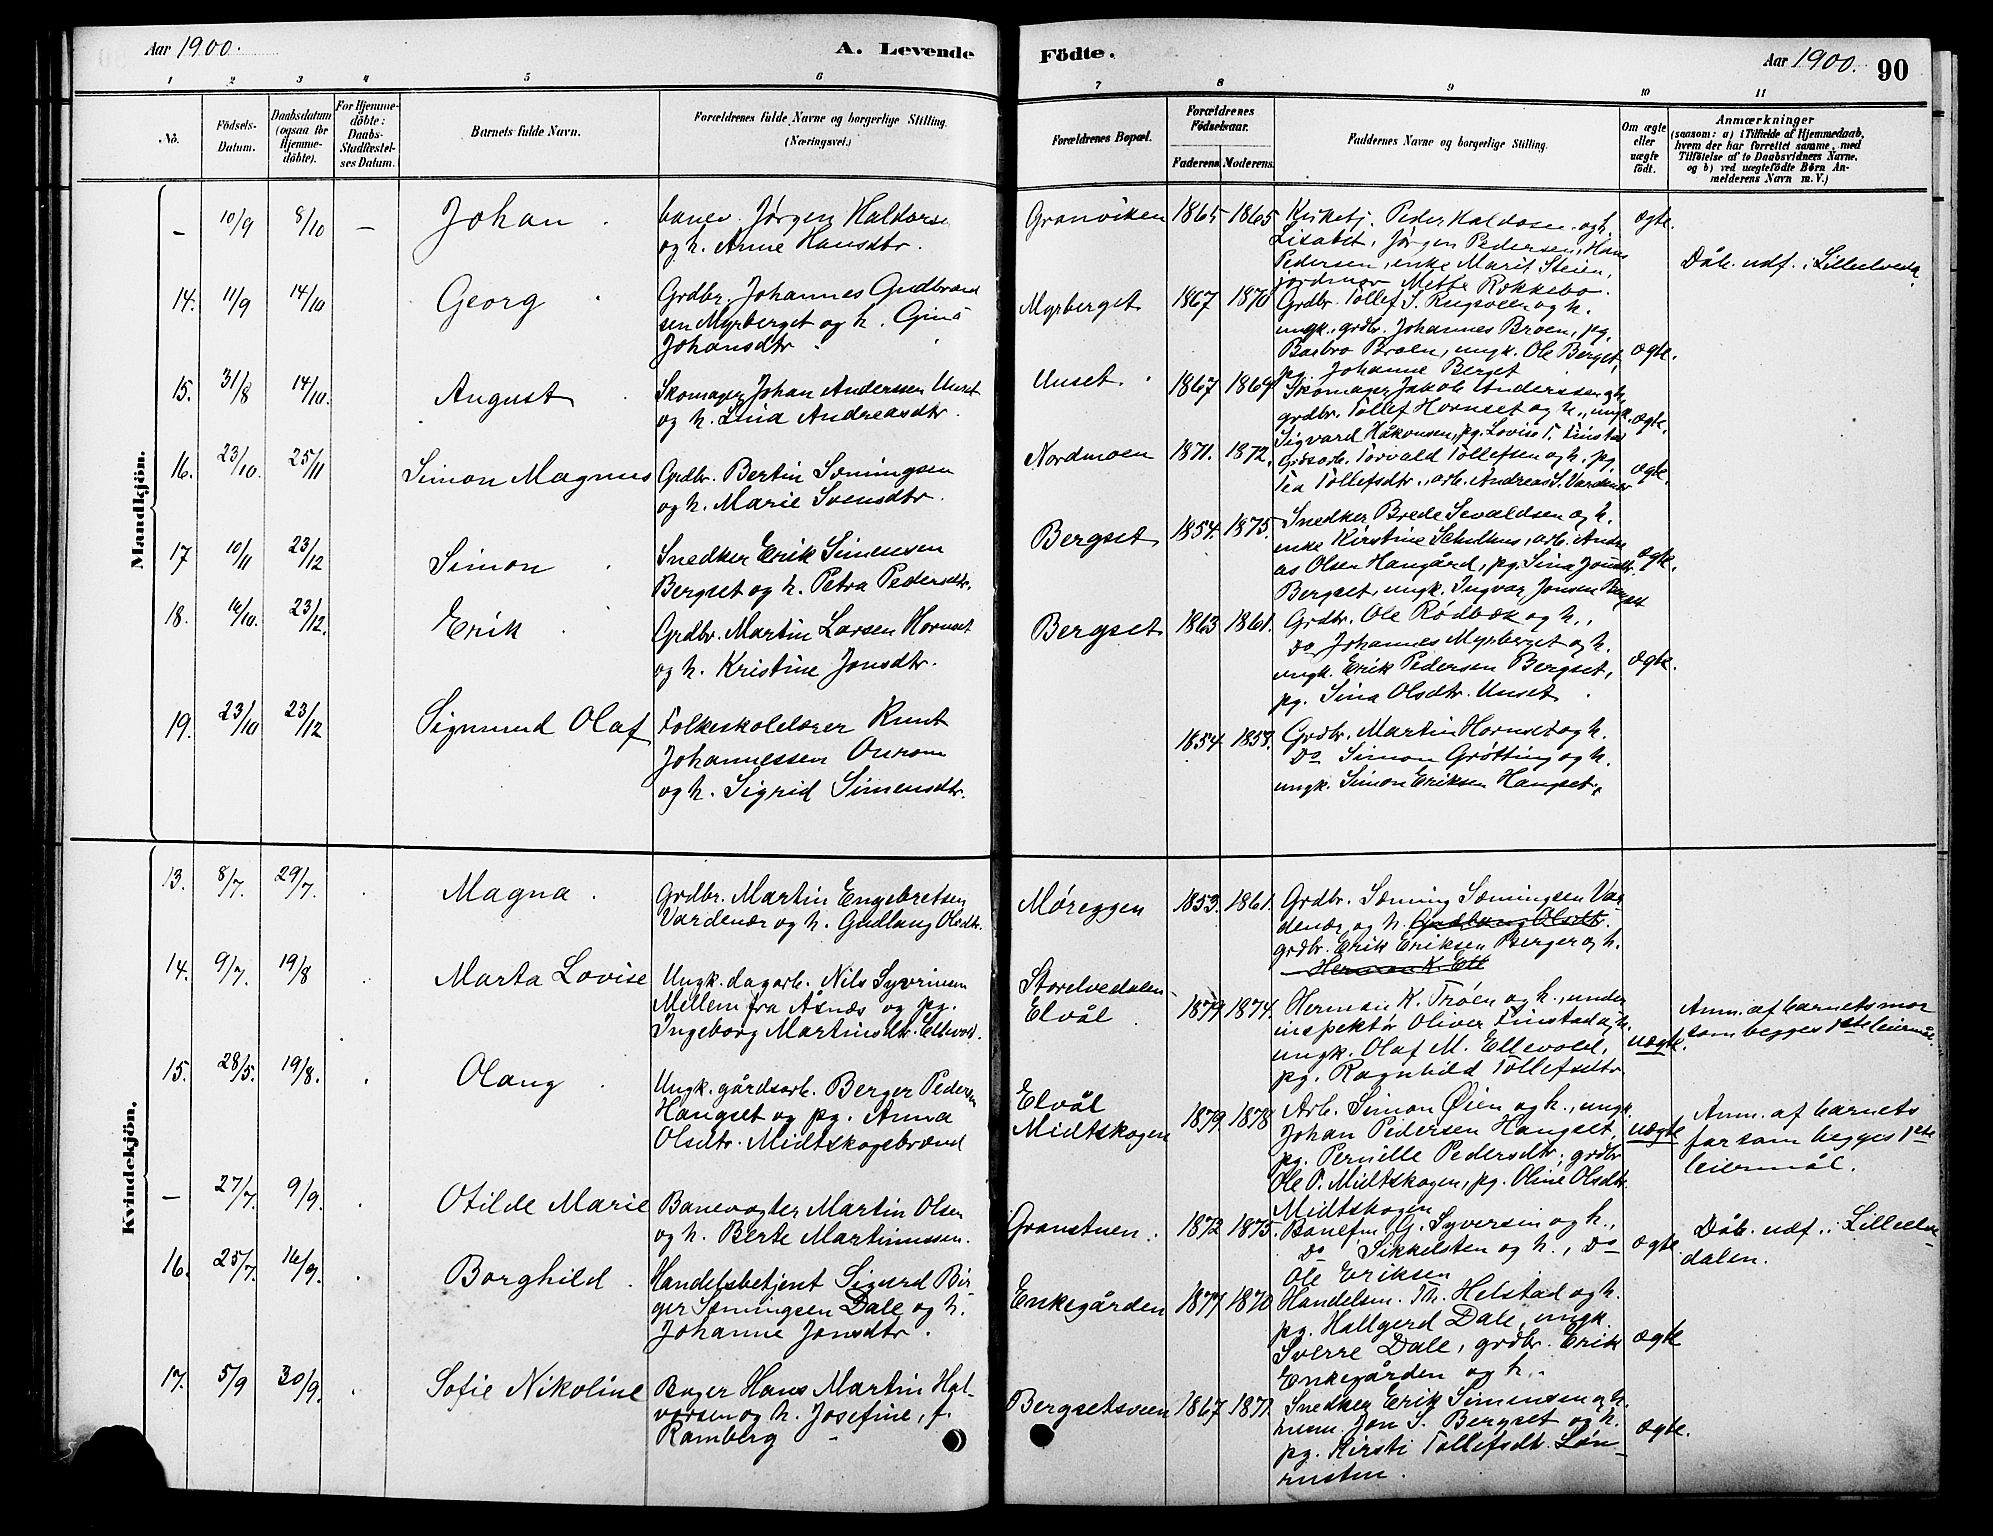 Aar 1900.
A. Levende
Födte.
Aar 1900.
90
1 2 3 4 5 6 7 8 9 10 11
No.
Födsels-
Datum.
Daabsdatum
(ogsaa for
Hjemme-
döbte).
For Hjemme-
döbte:
Daabs-
Stadfæstel-
ses Datum.
Barnets fulde Navn.
Forældrenes fulde Navne og borgerlige Stilling.
(Næringsvei.)
Forældrenes Bopæl.
Forældrenes
Födselsaar.
Faderens. Moderens.
Faddernes Navne og borgerlige Stilling.
Om ægte
eller
uægte
födt.
Anmærkninger
(saasom: a) i Tilfælde af Hjemmedaab,
hvem der har forrettet samme, med
Tilföielse af to Daabsvidners Navne,
og b) ved uægtefödte Börn An-
melderens Navn m. V.)
Mandkjön.
— 10/9 8/10 — Johan
banev. Jørgen Haldorse
og h. Anne Hansdtr.
Granviken 1865 1865
Kirketj. Peder Haldosen og h.
Lisabet, Jørgen Pedersen, Hans
Pedersen, enke Marit Steien,
jordmor Mette Rokkebo.
ægte.
Dåb. udf. i Lilleelveda
14. 11/9 14/10 Georg
Grdbr. Johannes Gudbrand
sen Myrberget og h. Gina
Johansdtr
Myrberget 1867 1870
Grdbr. Tollef S. Rugsveen og h.
ungk. grdbr. Johannes Broen, pg.
Barbro Broen, ungk. Ole Berget,
pg. Johanne Berget
ægte.
15. 31/8 14/10. August
Skomager Johan Anderssen Unset
og h. Lina Andreasdtr.
Unset. 1867 1869
Skomager Jakob Anderssen og h.
grdbr. Tollef Hornset og h., ungk.
Sigvard Håkonsen, pg. Lovise T. Finstad
ægte.
16. 23/10. 25/11 Simon Magnus
Grdbr. Bertin Sæmingsen
og h. Marie Svensdtr.
Nordmoen 1871. 1872.
Grdsarb. Torvald Tollefsen og h., pg.
Tea Tollefsdtr., arb. Andreas S. Vardenær
ægte.
17 10/11 23/12 Simon
Snedker Erik Simensen
Bergset og h. Petra Pedersdtr.
Bergset 1854. 1875.
Snedker Brede Sevaldsen og h.
enke Kirstine Schulhus, arb. Andre
as Olsen Hangård, pg. Sina Jonsdtr.
Bergset, ungk. Ingvar Jonsen Bergset
ægte.
18. 14/10. 23/12. Erik
Grdbr. Martin Larsen Hornset
og h. Kristine Jonsdtr.
Bergset 1863 1861.
Grdbr. Ole Rødbæk og h.,
Do Johannes Myrberget og h.
ungk. Erik Pedersen Bergset,
pg. Sina Olsdtr. Unset
ægte.
19. 23/10 23/12 Sigmund Olaf
Folkeskolelærer Knut
Johannessen Aurom
og h. Sigrid Simensdtr.
1854 1858.
Grdbr. Martin Hornset og h.
Do Simon Grøtting og h.
ungk. Simon Eriksen Hangset.
Kvindekjön.
13. 8/7. 29/7. Magna
Grdbr. Martin Engebretsen
Vardenær og h. Gudlaug Olsdtr.
Møreggen 1853. 1861.
Grdbr. Sæming Sæmingsen Var
denær og h. Gudlaug Olsdtr.
grdbr. Erik Eriksen Berger og h.
Herman K. Ell
14. 9/7. 19/8 Marta Lovise
Ungk. dagarb. Nils Syvrinsen
Mellem fra Åsnæs og pg.
Ingeborg Martinsdtr. Ellevol.
Storelvedalen
Elvål 1879 1874.
Herman K. Trøen og h., under
inspektør Oliver Finstad og h.
ungk. Olaf M. Ellevold,
pg. Ragnhild Tollefsdtr
uægte.
Anm. af barnets mor
som begges 1ste leiermål.
15. 28/5. 19/8. Olaug
Ungk. gårdsarb. Berger Pedersen
Hangset og pg. Anna
Olsdtr. Midtskogebrænd
Elvål
Midtskogen 1879. 1878
Arb. Simon Øien og h., ungk.
Johan Pedersen Hangset,
pg. Pernille Pedersdtr, grdbr
Ole P. Midtskogen, pg. Oline Olsdtr.
Midtskogen
uægte
Anm. af barnets
far som begges 1ste
leiermål.
— 27/7. 9/9. Otilde Marie
Banevogter Martin Olsen
og h. Berte Martinussen.
Granstuen. 1872 1875.
Banefm. G. Syversen og h.,
Do Sikkelsten og h., Do
Ole Eriksen
ægte
Dåb. udf. i Lilleelve-
dalen.
16. 25/7. 16/9. Borghild
Handelsbetjent Sigurd Bir
ger Sæmingsen Dale og h.
Johanne Jonsdtr.
Enkegården 1877. 1870
Handelsm. Th. Helstad og h.
pg. Hallgerd Dale, ungk.
Sverre Dale, grdbr. Erik
Enkegården og h.
ægte
17. 5/9 30/9. Sofie Nikoline
Bager Hans Martin Hal-
vorsen og h. Josefine, f.
Ramberg
Bergsetsveen 1867 1871.
Snedker Erik Simensen og h.
mem. Jon S. Bergset og h.
pg. Kirsti Tollefsdt. Løn-
rusten.
ægte.